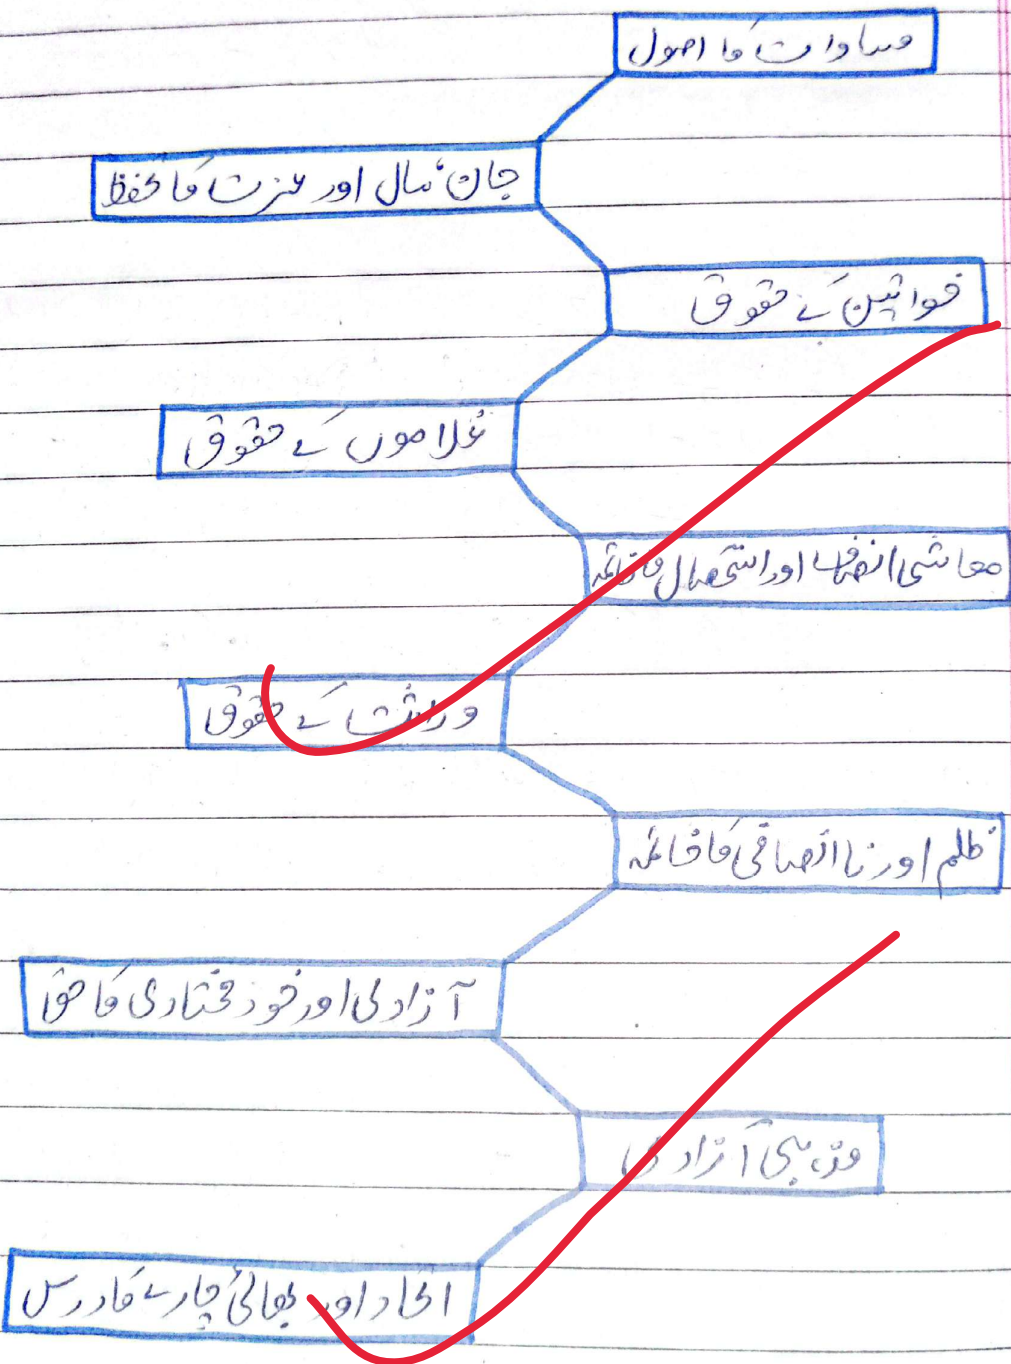 مساوات کا اصول
جان، مال اور عزت کا تحفظ
خواتین کے حقوق
غلاموں کے حقوق
معاشی انصاف اور استحصال کا خاتمہ
وراثت کے حقوق
ظلم اور ناانصافی کا خاتمہ
آزادی اور خود مختاری کا حق
مذہبی آزادی
اتحاد اور بھائی چارے کا درس